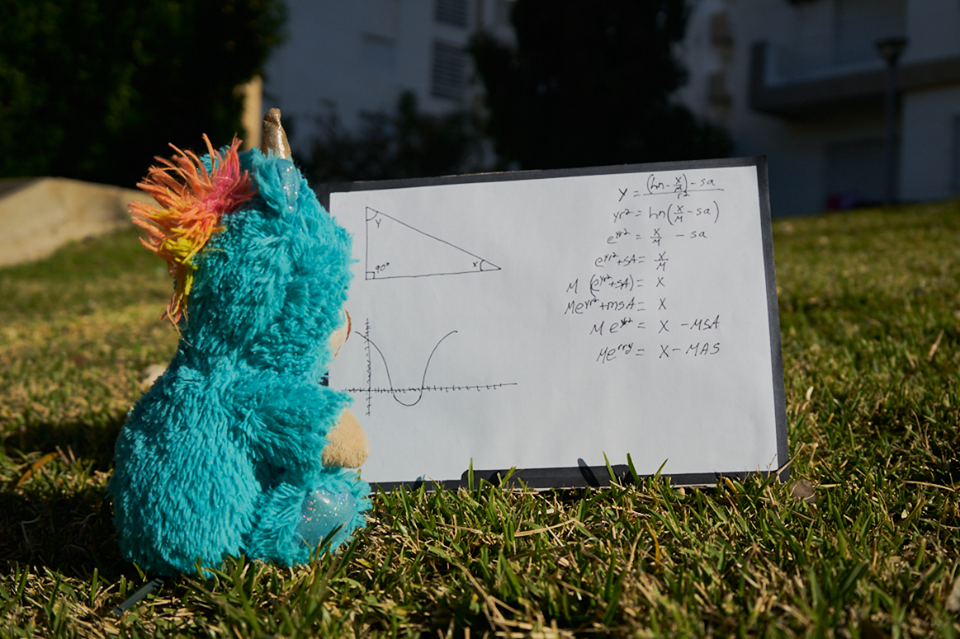 Y
90°
x
Y = (ln - X/M) - sa / r²
yr² = ln(X/M - sa)
e^yr² = X/M - sa
e^yr² + sA = X/M
M (e^yr² + sA) = X
Me^yr² + msA = X
Me^yr² = X - MSA
Me^rry = X - MAS